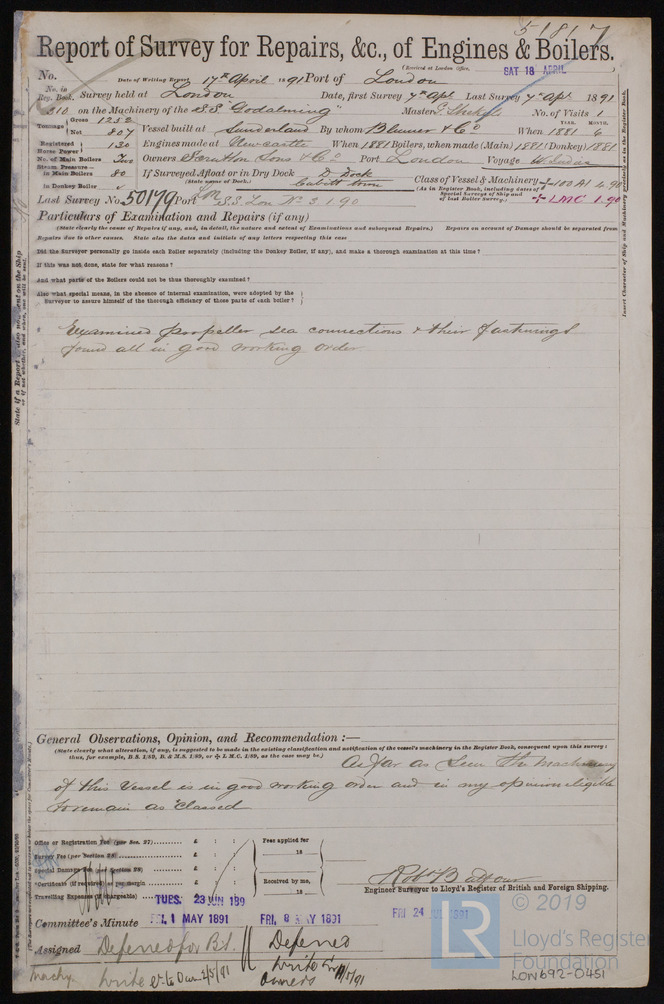 51817
Report of Survey for Repairs, &c., of Engines & Boilers.
(Received at London Office, SAT 18 APRIL
No. Date of Writing Report 17th April 1891 Port of London
No. in Reg. Book. Survey held at London Date, first Survey 7th Apl Last Survey 7th Apl 1891
310 on the Machinery of the S.S. "Godalming" Master No. of Visits 1
Tonnage Gross 1252 Net 807 Vessel built at Sunderland By whom Blumer & Co When 1881 YEAR. 6 MONTH.
Registered Horse Power 130 Engines made at Newcastle When 1881 Boilers, when made (Main) 1881 (Donkey) 1881
No. of Main Boilers Two Owners Scrutton Sons & Co Port London Voyage W. Indies
Steam Pressure— in Main Boilers 80 If Surveyed Afloat or in Dry Dock D. Dock
(State name of Dock.) Cubitt Town
Class of Vessel & Machinery 100 A1 4.90
(As in Register Book, including dates of Special Surveys of Ship and of last Boiler Survey.) LMC 1.90
in Donkey Boiler
Last Survey No. 50179 Port Lon S.S. Lon No 3 1.90
Particulars of Examination and Repairs (if any)
(State clearly the cause of Repairs if any, and, in detail, the nature and extent of Examinations and subsequent Repairs.) Repairs on account of Damage should be separated from
Repairs due to other causes. State also the dates and initials of any letters respecting this case
Did the Surveyor personally go inside each Boiler separately (including the Donkey Boiler, if any), and make a thorough examination at this time?
If this was not done, state for what reasons?
And what parts of the Boilers could not be thus thoroughly examined?
Also what special means, in the absence of internal examination, were adopted by the Surveyor to assure himself of the thorough efficiency of those parts of each boiler?
Examined propeller sea connections & their fastenings
found all in good working order
General Observations, Opinion, and Recommendation:—
(State clearly what alteration, if any, is suggested to be made in the existing classification and notification of the vessel's machinery in the Register Book, consequent upon this survey: thus, for example, B.S. 1/89, B. & M.S. 1/89, or L.M.C. 1/89, as the case may be.)
As far as seen the Machinery
of this Vessel is in good working order and in my opinion eligible
to remain as Classed
Office or Registration Fee (per Sec. 27) £ : : Fees applied for
Survey Fee (per Section 28) £ : : 18
Special Damage Fee (per Section 28) £ : :
Certificate (if required) as per margin £ : : Received by me,
Travelling Expenses (if chargeable) £ : : 18
Robt Balfour
Engineer Surveyor to Lloyd's Register of British and Foreign Shipping.
TUES. 23 JUN 189
Committee's Minute FRI. 1 MAY 1891 FRI. 8 MAY 1891 FRI 24 JUL 1891
Assigned Deferred for B.S. Deferred
Machy. Write to Own 2/5/91 Write Owners 11/5/91
© 2019
LR Lloyd's Register Foundation
LON692-0451